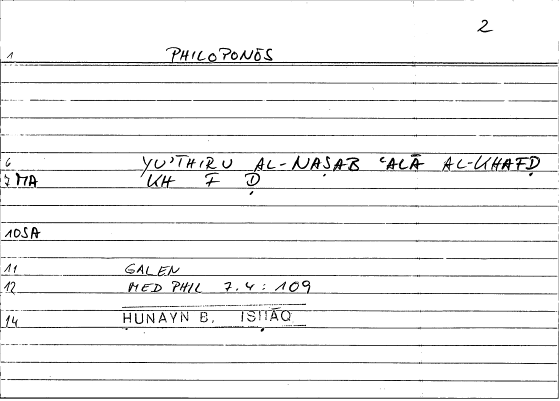 2
1 PHILOPONĒS
6 YU'THIRU AL-NAṢAB ʿALĀ AL-KHAFḌ
7 MA KH F Ḍ
10 SA
11 GALEN
12 MED PHIL 7.4 : 109
14 ḤUNAYN B. ISḤĀQ